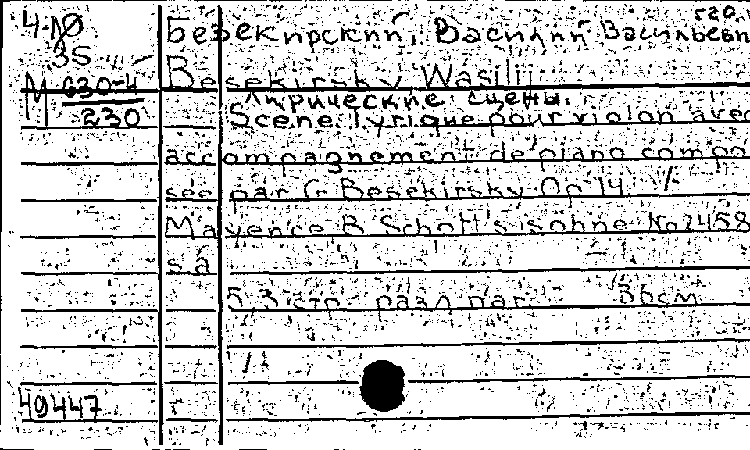 4-10
35
М 630-4
230
Безекирский, Василий Васильевич
Besekirsky, Wasilij
Лирические сцены.
Scene lyrique pour violon avec
accompagnement de piano compo
sée par G. Besekirsky Op 14
Mayence B. Schott's söhne No 2458
s a
5,3 стр. разл. паг. 36 см
49447